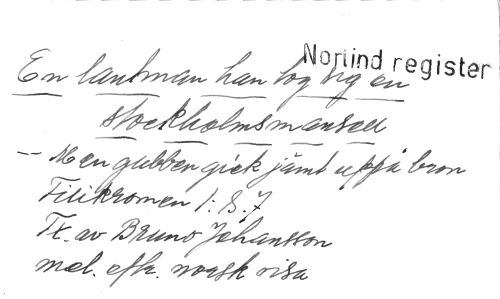 Norlind register
En lantman han tog sig en
stockholmsmansell
-- Men gubben gick jämt uppå bron
Filikromen 1: S. 7
Tx. av Bruno Johansson
mel. efter norsk visa